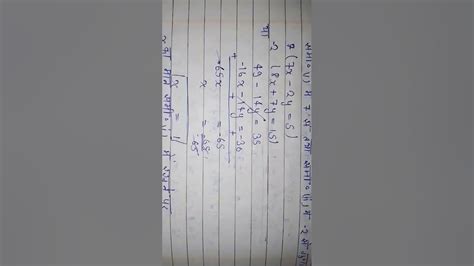 समी० (i) में 7 से तथा समी० (ii) में -2 से गुणा
7 (7x - 2y = 5)
-2 (8x + 7y = 15)
49 - 14y = 35
-16x - 14y = -30
+ + +
-65x = -65
x = -65/-65
x = 1
x का मान समी० (i) में रखने पर